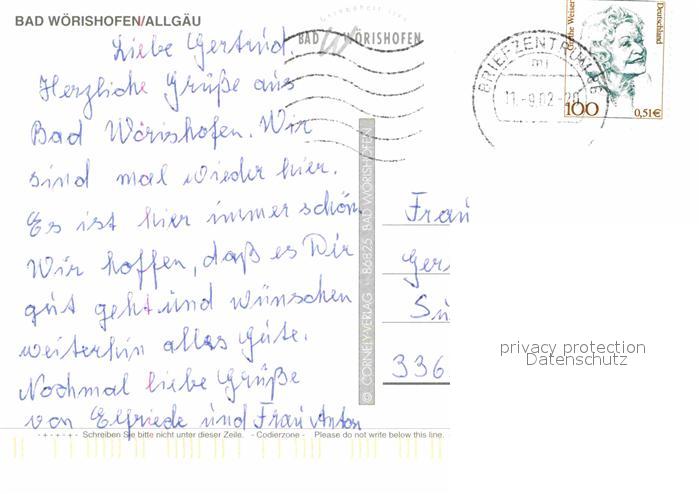 BAD WÖRISHOFEN/ALLGÄU
Liebe Gertrud.
Herzliche Grüße aus
Bad Wörishofen. Wir
sind mal wieder hier.
Es ist hier immer schön.
Wir hoffen, daß es Dir
gut geht und wünschen
weiterhin alles Gute.
Nochmal liebe Grüße
von Elfriede und Frau Anton
-+-+-+- Schreiben Sie bitte nicht unter dieser Zeile. - Codierzone - Please do not write below this line.
BAD WÖRISHOFEN
© CORNELY-VERLAG 86825 BAD WÖRISHOFEN
BRIEFZENTRUM 86
mi
11.-9.02-20
Grethe Weiser
Deutschland
100
0,51€
Frau
Ger
Sü
336
privacy protection
Datenschutz